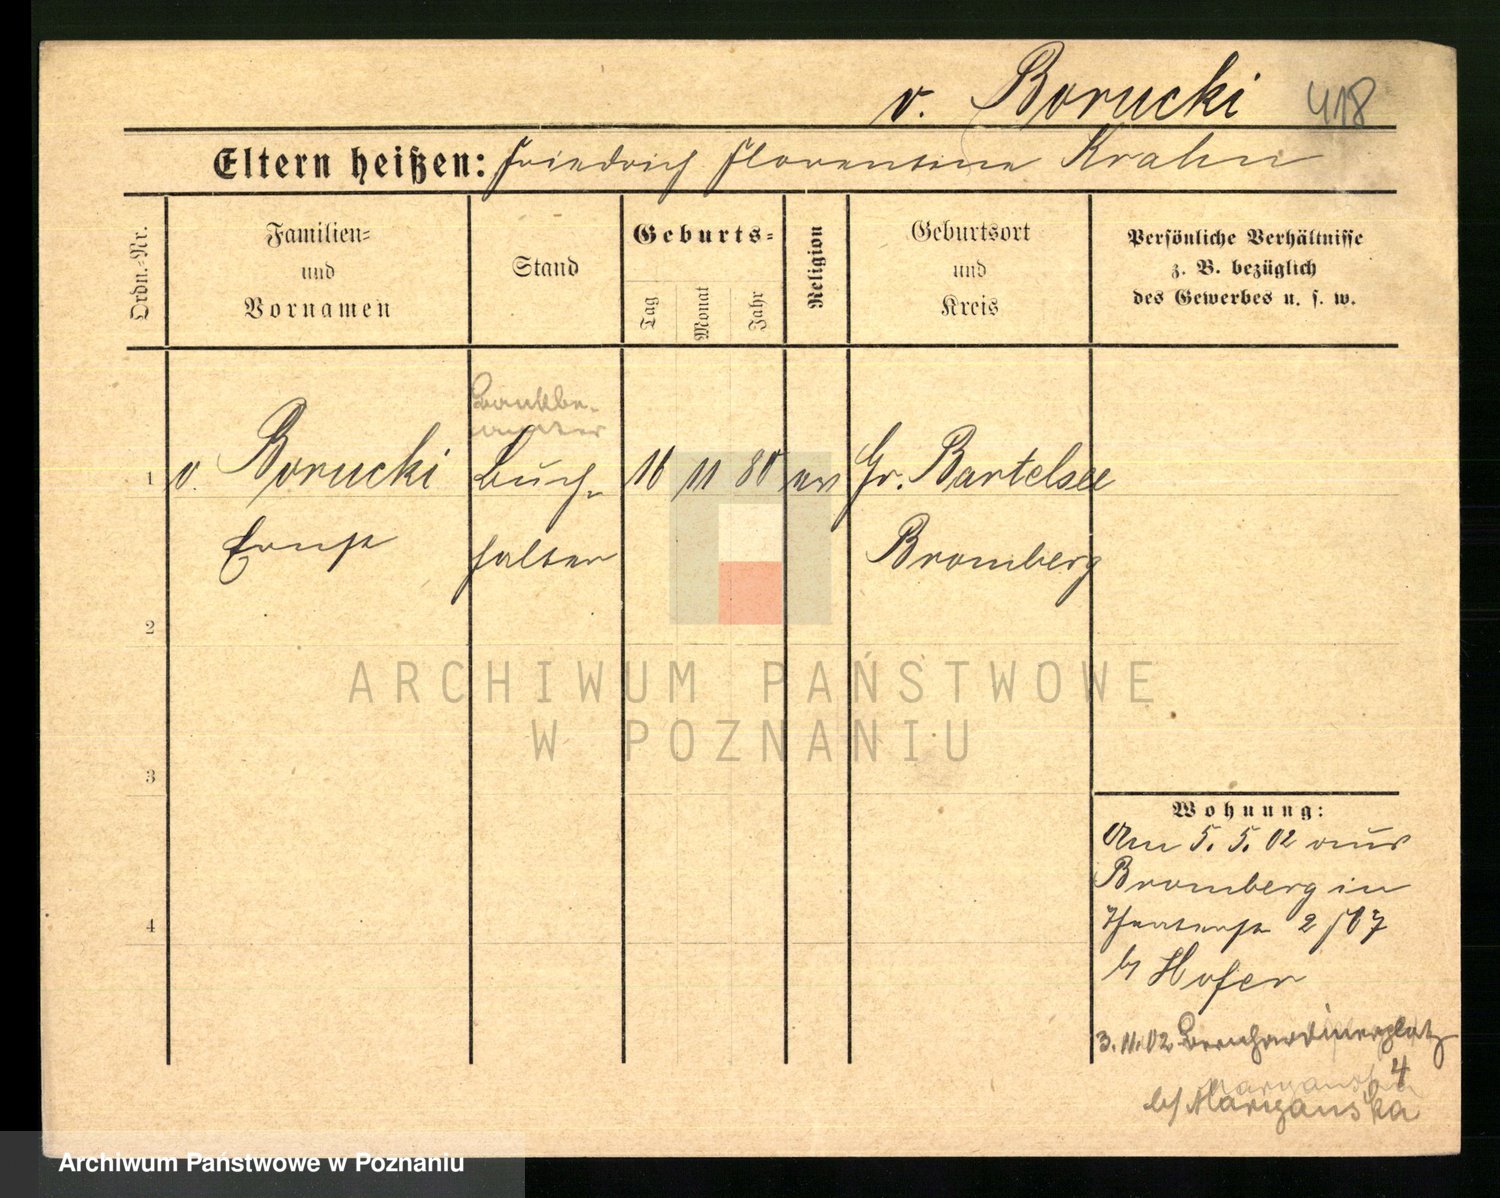 v. Borucki 418
Eltern heißen: Friedrich Florentine Krahn
Ordn.-Nr.
Familien-
und
Vornamen
Stand
Geburts-
Tag
Monat
Jahr
Religion
Geburtsort
und
Kreis
Persönliche Verhältnisse
z. B. bezüglich
des Gewerbes u. s. w.
Bankbe-
amter
1 v. Borucki Buch- 16 11 80 ev Gr. Bartelsee
Ernst halter Bromberg
2
3
4
ARCHIWUM PAŃSTWOWE
W POZNANIU
Wohnung:
Am 5. 5. 02 aus
Bromberg in
2
b/ Hofer
3.11.02 Bernhardinerplatz
4
b/ Maryanska
Archiwum Państwowe w Poznaniu